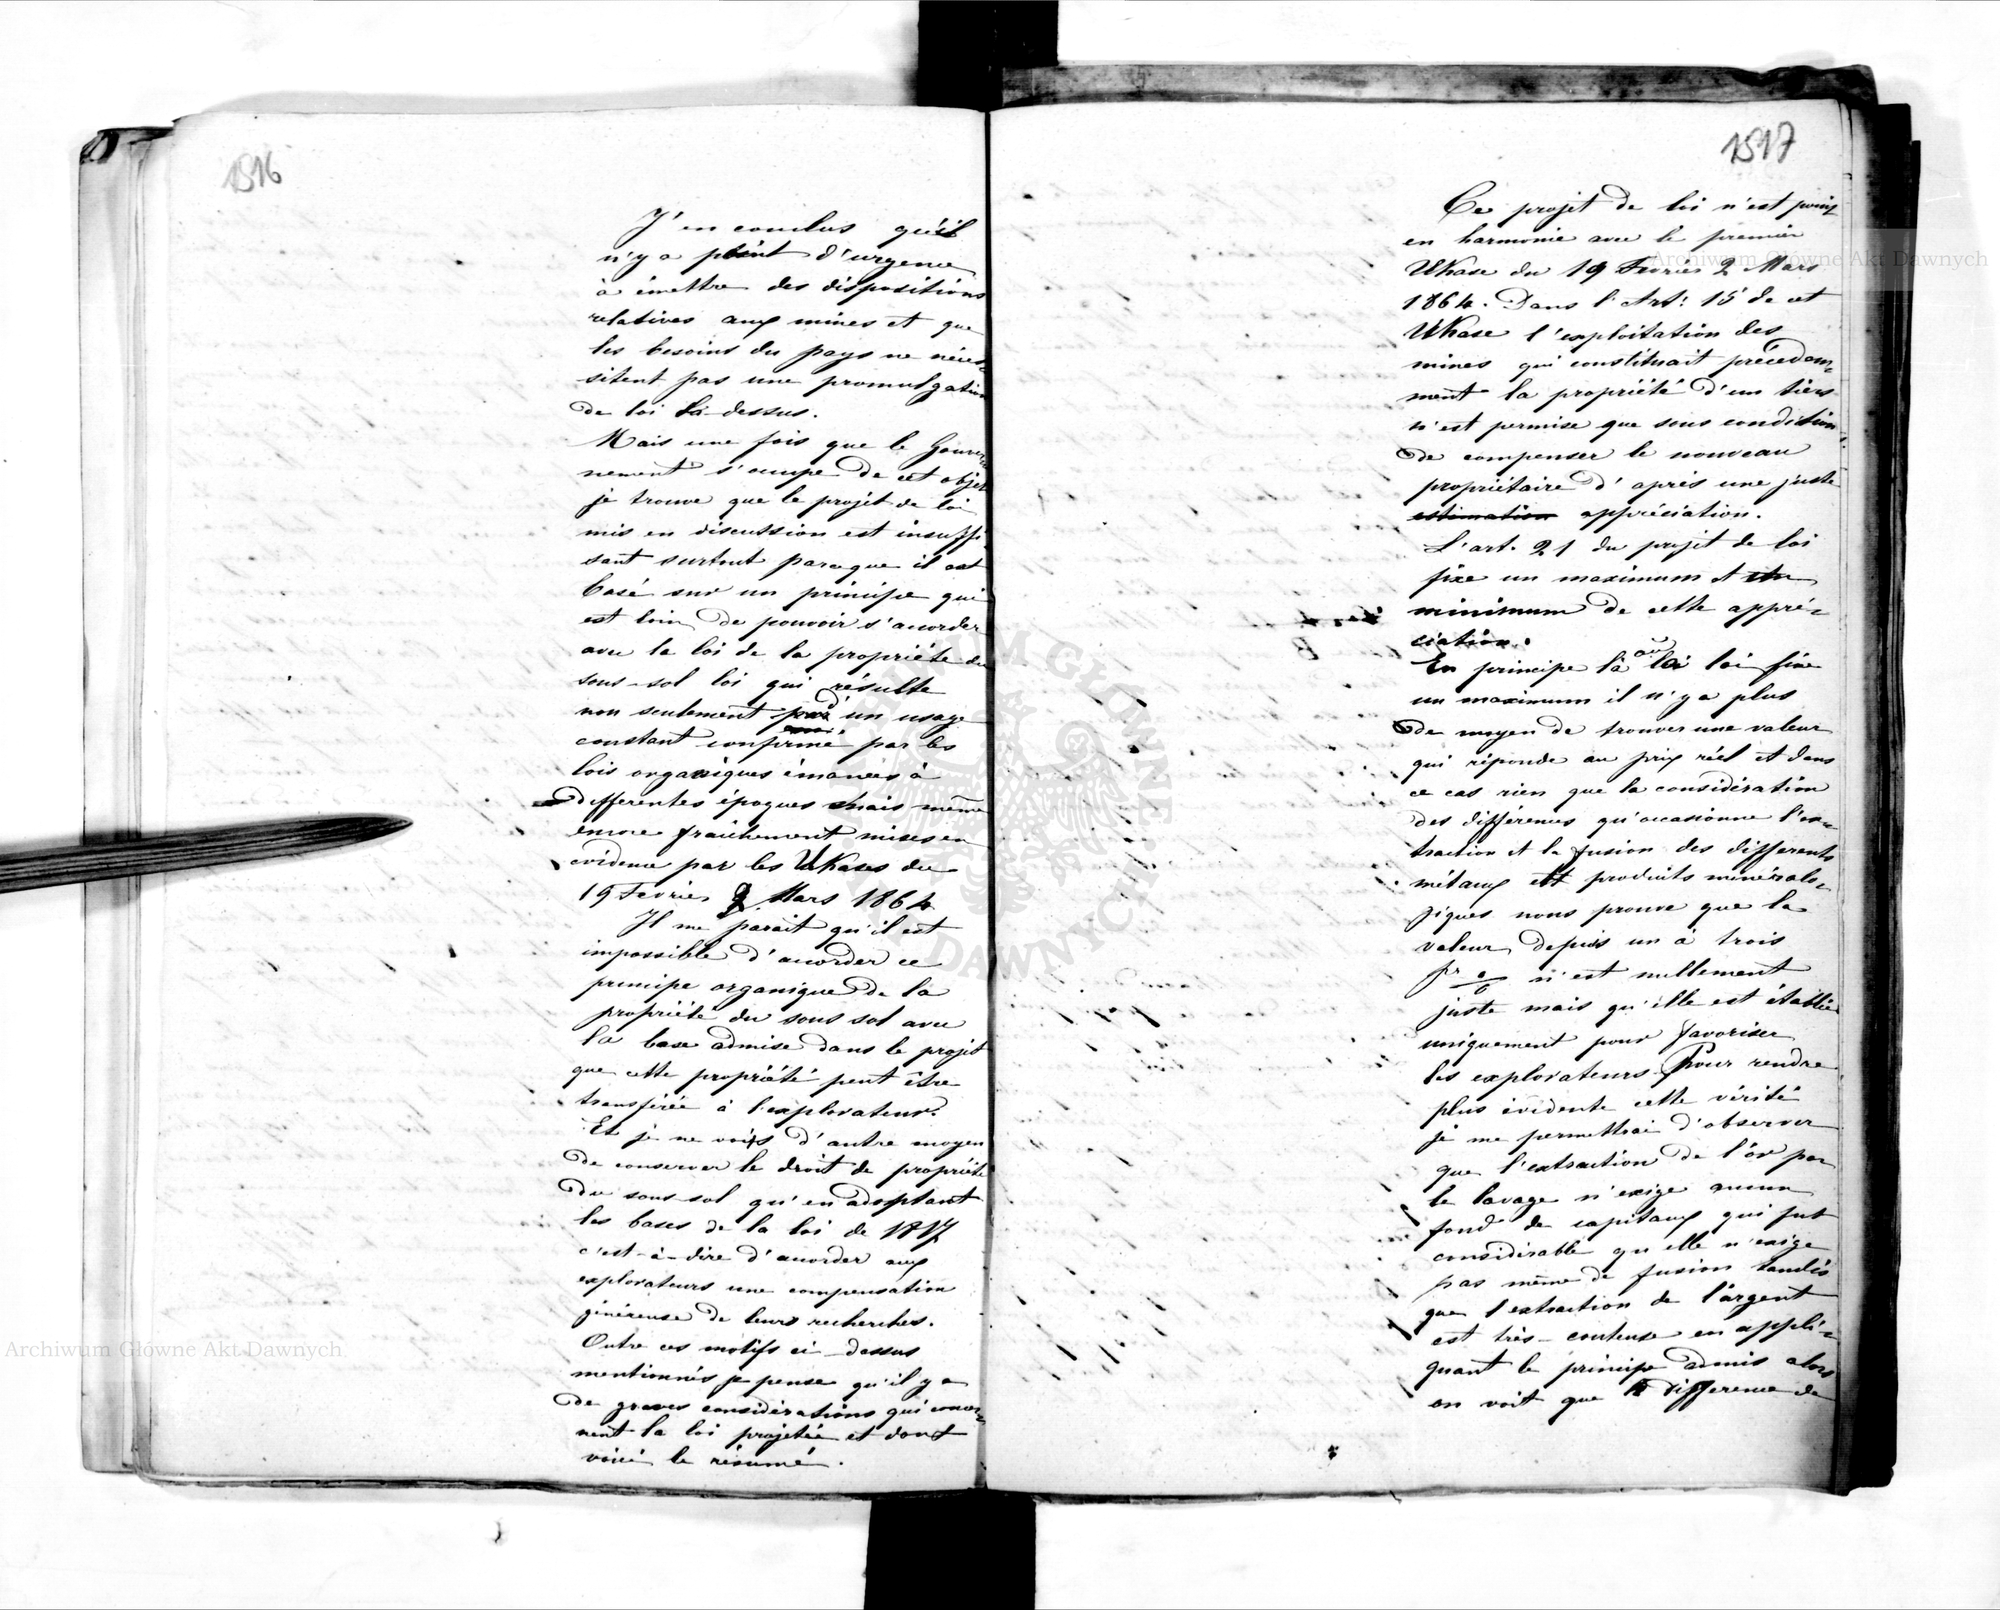 1516
J'en conclus qu'il
n'y a point d'urgence
à émettre des dispositions
relatives aux mines et que
les besoins du pays ne néces-
sitent pas une promulgation
de loi là-dessus.
Mais une fois que le Gouver-
nement s'occupe de cet objet
je trouve que le projet de loi
mis en discussion est insuffi-
sant surtout parceque il est
basé sur un principe qui
est loin de pouvoir s'accorder
avec la loi de la propriété du
sous-sol loi qui résulte
non seulement d'un usage
constant confirmé par les
lois organiques émanées à
differentes époques mais même
encore fraichement mises en
évidence par les Ukases du
19 Fevrier 2 Mars 1864
Il me parait qu'il est
impossible d'accorder ce
principe organique de la
propriété du sous sol avec
la base admise dans le projet
que cette propriété peut être
transférée à l'explorateur.
Et je ne vois d'autre moyen
de conserver le droit de propriété
du sous-sol qu'en adoptant
les bases de la loi de 1817
c'est-à-dire d'accorder aux
explorateurs une compensation
généreuse de leurs recherches.
Outre ces motifs ci-dessus
mentionnés je pense qu'il y a
de graves considérations qui concer-
nent la loi projetée et dont
voici le résumé.
1517
Ce projet de loi n'est point
en harmonie avec le premier
Ukase du 19 Fevrier 2 Mars
1864. Dans l'Art: 15 de cet
Ukase l'exploitation des
mines qui constituait précédem-
ment la propriété d'un tiers
n'est permise que sous condition
de compenser le nouveau
propriétaire d'après une juste
estimation appréciation.
L'art. 21 du projet de loi
fixe un maximum et un
minimum de cette appré-
ciation.
En principe là où la loi fixe
un maximum il n'y a plus
de moyen de trouver une valeur
qui réponde au prix réel et dans
ce cas rien que la considération
des différences qu'occasionne l'ex-
traction et la fusion des differents
métaux et produits minéralo-
giques nous prouve que la
valeur depuis un à trois
pr % n'est nullement
juste mais qu'elle est établie
uniquement pour favoriser
les explorateurs Pour rendre
plus évidente cette vérité
je me permettrai d'observer
que l'extraction de l'or par
le lavage n'exige aucun
fond de capitaux qui fut
considérable qu'elle n'exige
pas même de fusion tandis
que l'extraction de l'argent
est très-couteuse en appli-
quant le principe admis alors
on voit que la difference de
Archiwum Główne Akt Dawnych
Archiwum Główne Akt Dawnych
ARCHIWUM GŁÓWNE AKT DAWNYCH